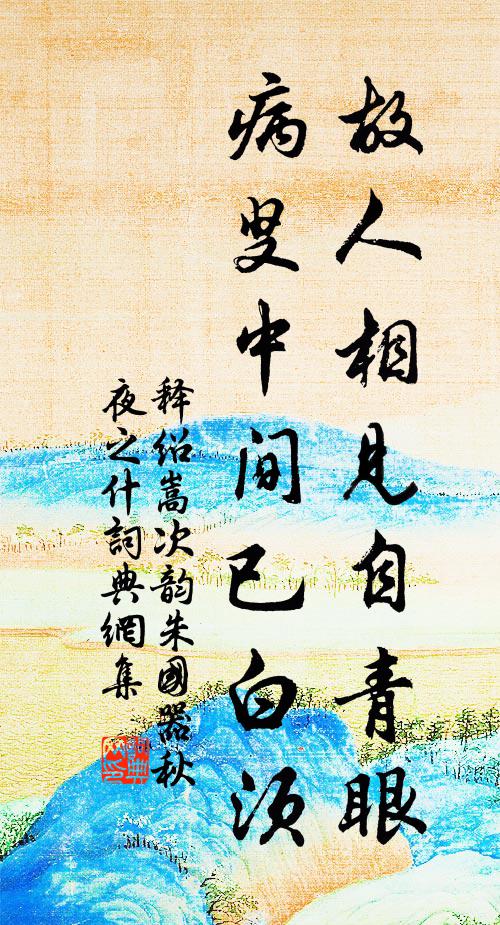 故人相見自青眼
病叟中間已白須
释绍嵩次韵朱國器秋
夜之什詞典網集